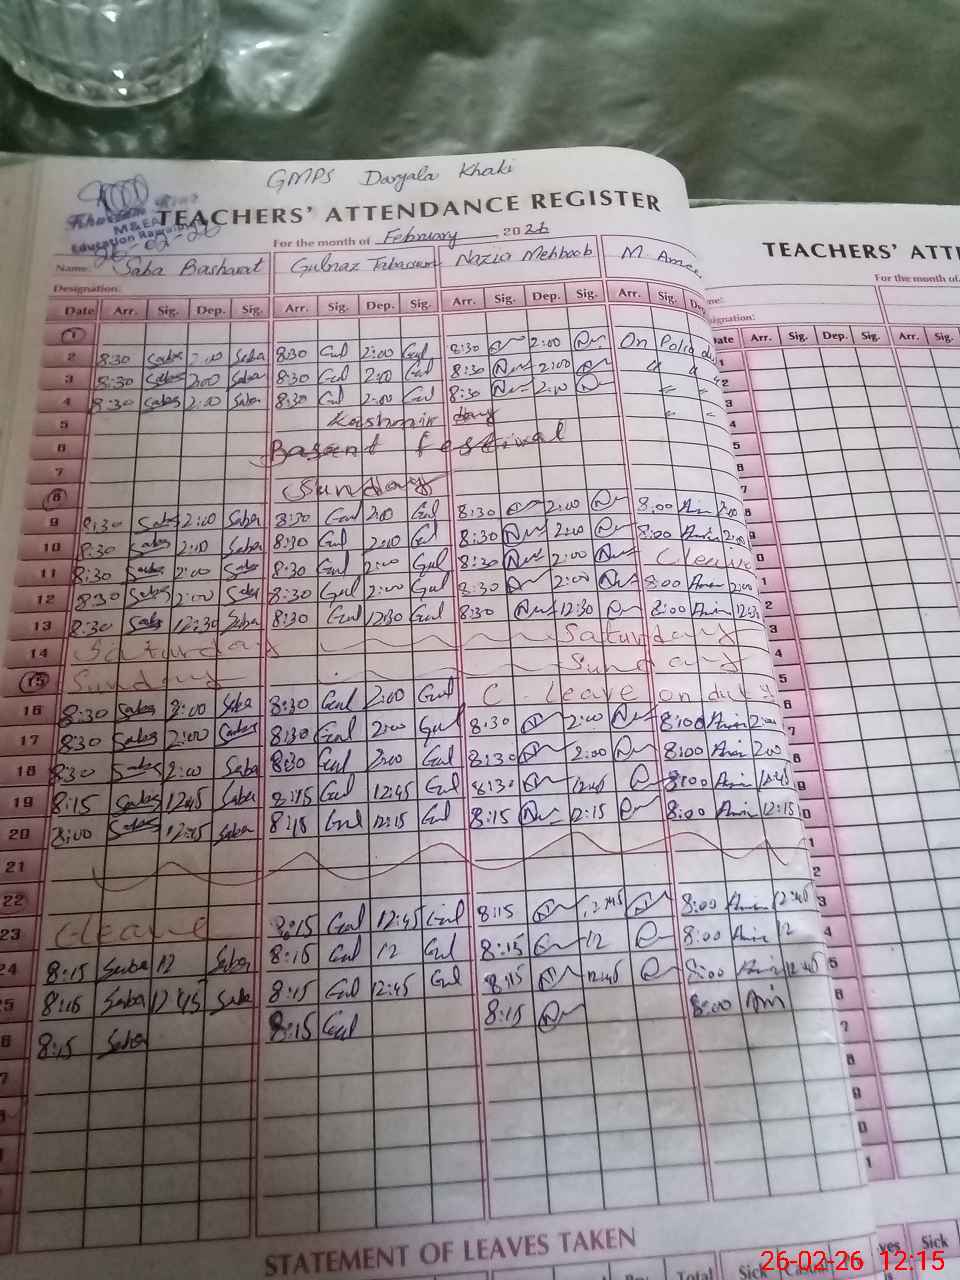 GMPS Daryala Khaki
TEACHERS' ATTENDANCE REGISTER
M&EA
Education Rawalpindi
26-02-26
For the month of February 2026
Name: Saba Basharat Gulnaz Tabassum Nazia Mehboob M. Ameer
Designation:
Date Arr. Sig. Dep. Sig. Arr. Sig. Dep. Sig. Arr. Sig. Dep. Sig. Arr. Sig. Dep.
1
2 8:30 Saba 2:00 Saba 8:30 Gul 2:00 Gul 8:30 2:00 On Polio du
3 8:30 Saba 2:00 Saba 8:30 Gul 2:00 Gul 8:30 2:00 " "
4 8:30 Saba 2:00 Saba 8:30 Gul 2:00 Gul 8:30 2:00 " "
5 Kashmir day " "
6 Basant festival
7
8 Sunday
9 8:30 Saba 2:00 Saba 8:30 Gul 2:00 Gul 8:30 2:00 8:00 Amir 2:00
10 8:30 Saba 2:00 Saba 8:30 Gul 2:00 Gul 8:30 2:00 8:00 Amir 2:00
11 8:30 Saba 2:00 Saba 8:30 Gul 2:00 Gul 8:30 2:00 C leave
12 8:30 Saba 2:00 Saba 8:30 Gul 2:00 Gul 8:30 2:00 8:00 Amir 2:00
13 8:30 Saba 12:30 Saba 8:30 Gul 12:30 Gul 8:30 12:30 8:00 Amir 12:30
14 Saturday Saturday
15 Sunday Sunday
16 8:30 Saba 2:00 Saba 8:30 Gul 2:00 Gul C. leave on duty
17 8:30 Saba 2:00 Saba 8:30 Gul 2:00 Gul 8:30 2:00 8:00 Amir 2:00
18 8:30 Saba 2:00 Saba 8:30 Gul 2:00 Gul 8:30 2:00 8:00 Amir 2:00
19 8:15 Saba 12:45 Saba 8:15 Gul 12:45 Gul 8:30 12:45 8:00 Amir 12:45
20 8:00 Saba 12:15 Saba 8:15 Gul 12:15 Gul 8:15 12:15 8:00 Amir 12:15
21
22
23 C leave 8:15 Gul 12:45 Gul 8:15 12:45 8:00 Amir 12:45
24 8:15 Saba 12 Saba 8:15 Gul 12 Gul 8:15 12 8:00 Amir 12
5 8:15 Saba 12:45 Saba 8:15 Gul 12:45 Gul 8:15 12:45 8:00 Amir 12:45
6 8:15 Saba 8:15 Gul 8:15 8:00 Amir
7
STATEMENT OF LEAVES TAKEN
Total Sick
TEACHERS' ATTE
For the month of
Arr. Sig. Dep. Sig. Arr. Sig.
ves Sick
26-02-26 12:15